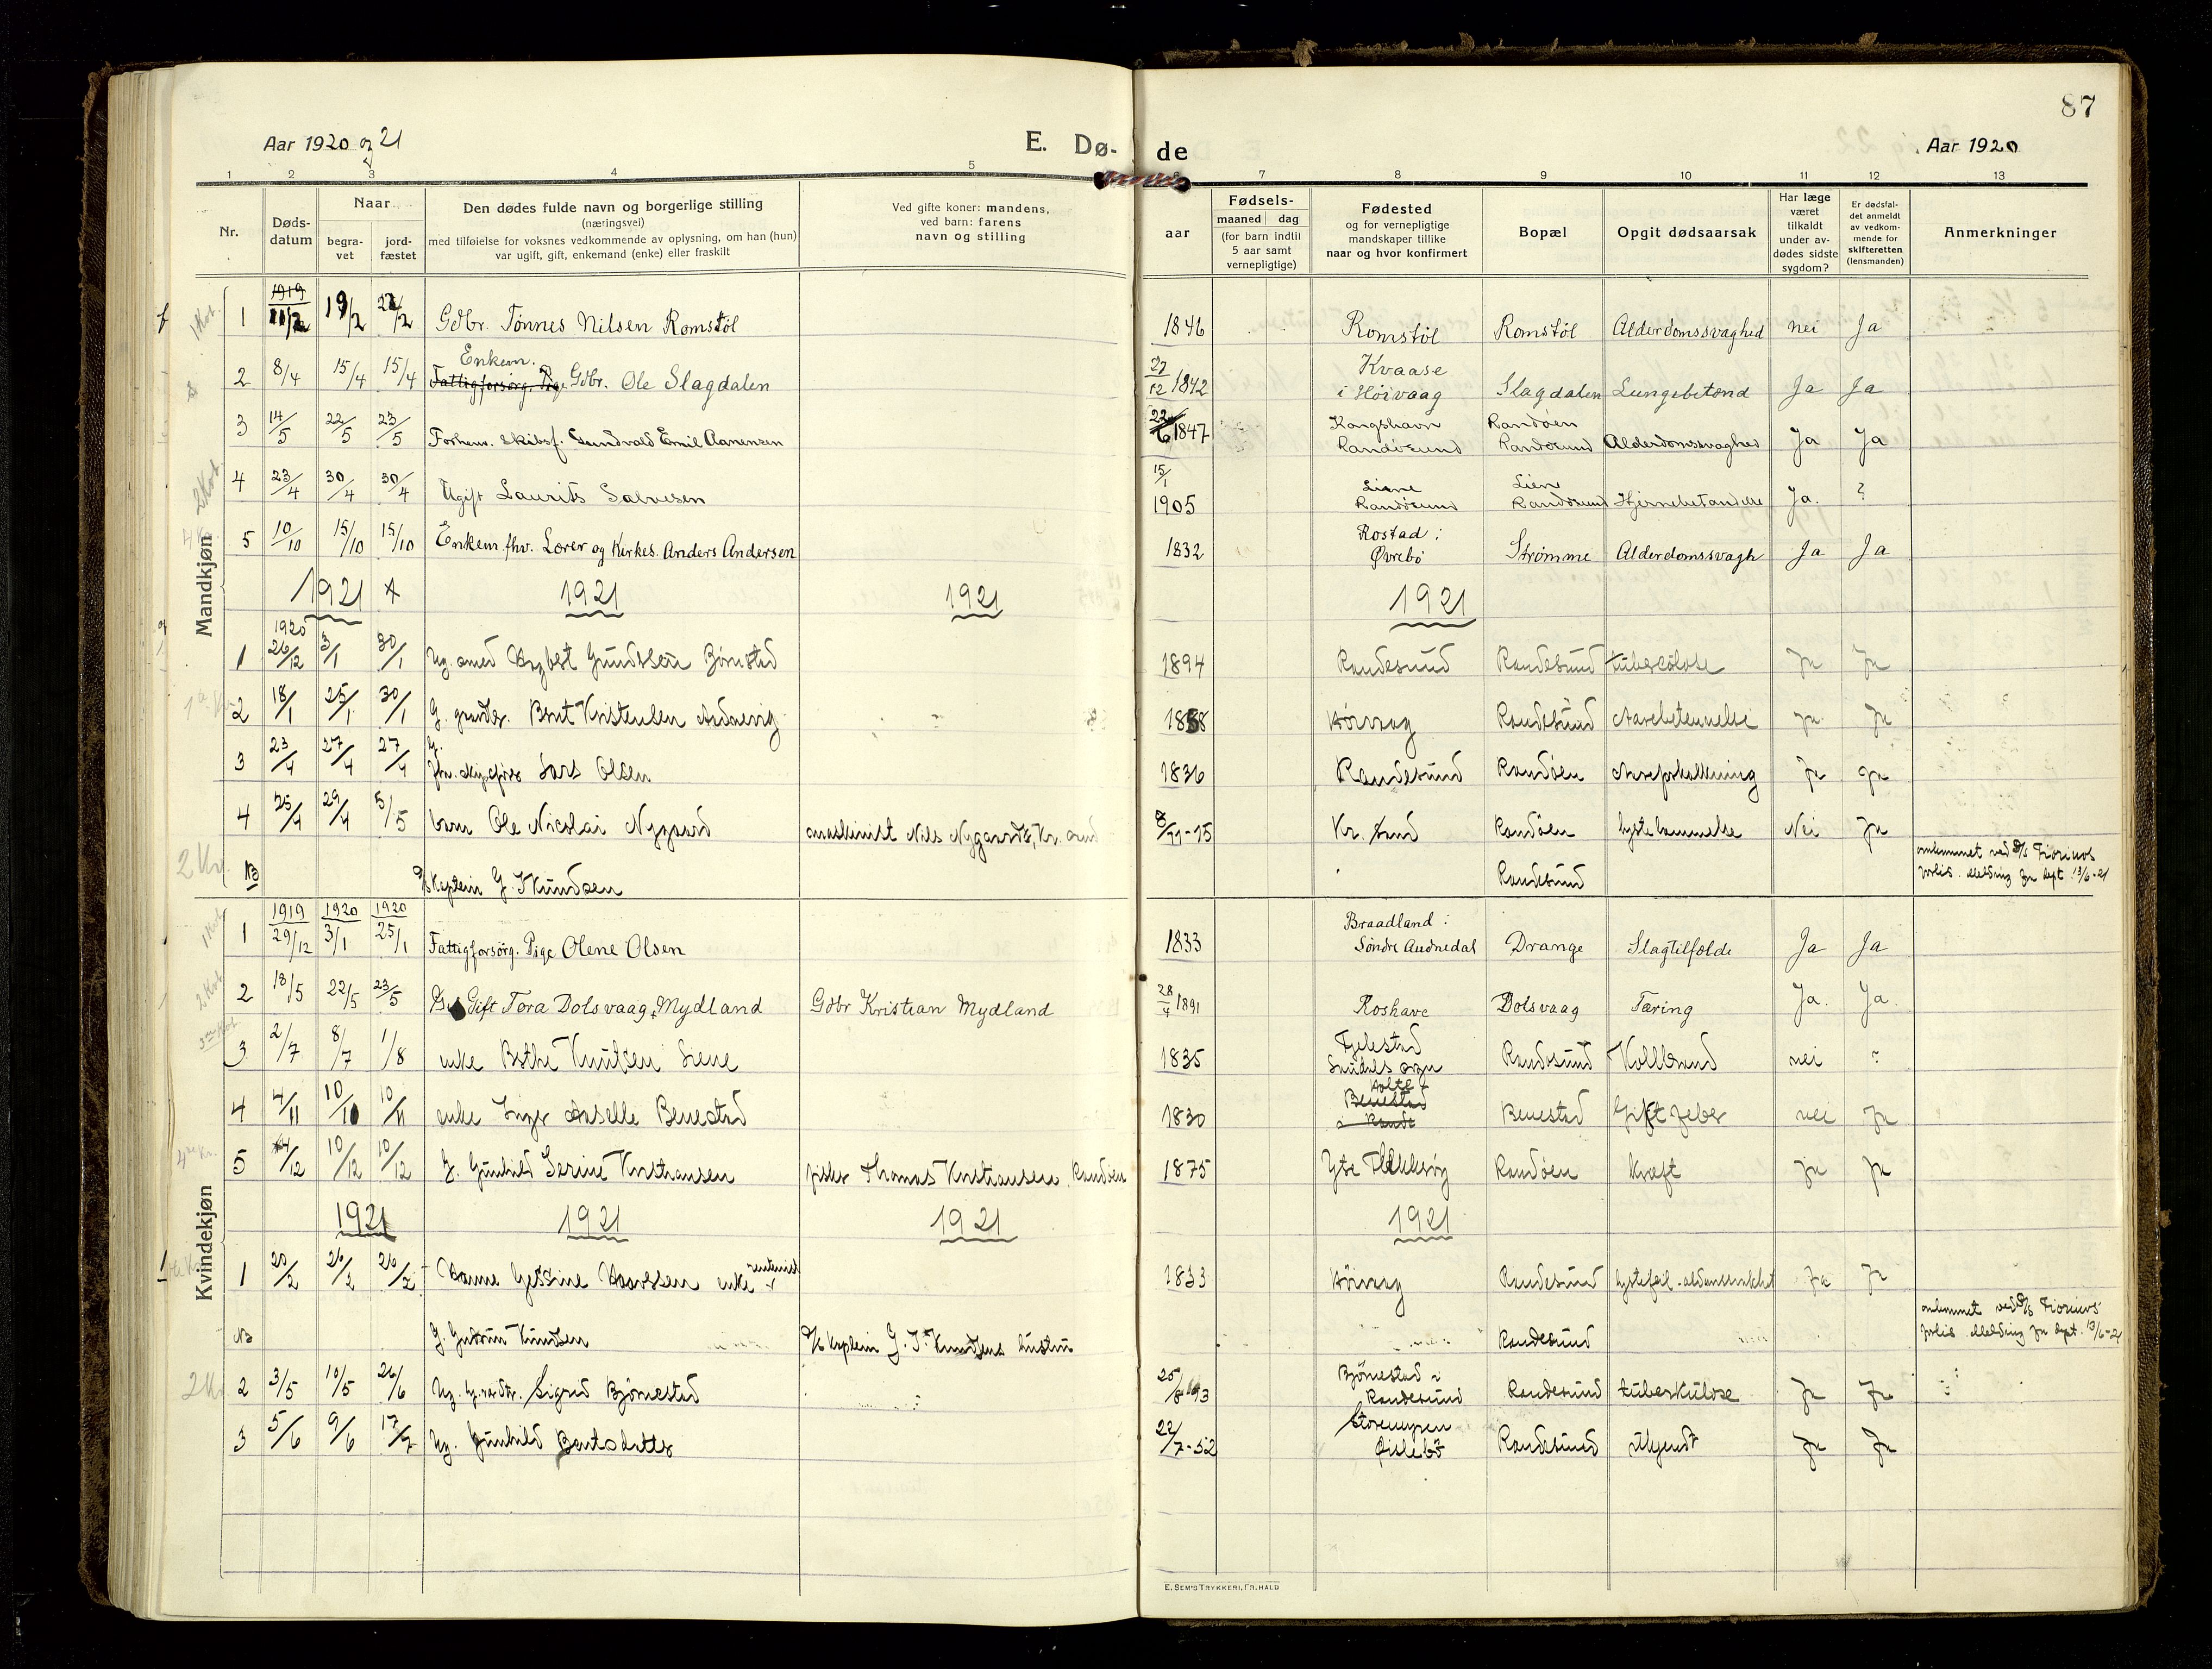 87
Aar 1920 og 21
E. Dø- de
Aar 1920
1 2 3 4 5 7 8 9 10 11 12 13
Nr.
Døds-
datum
Naar
begra-
vet
jord-
fæstet
Den dødes fulde navn og borgerlige stilling
(næringsvei)
med tilføielse for voksnes vedkommende av oplysning, om han (hun)
var ugift, gift, enkemand (enke) eller fraskilt
Ved gifte koner: mandens,
ved barn: farens
navn og stilling
aar
Fødsels-
maaned dag
(for barn indtil
5 aar samt
vernepligtige)
Fødested
og for vernepligtige
mandskaper tillike
naar og hvor konfirmert
Bopæl
Opgit dødsaarsak
Har læge
været
tilkaldt
under av-
dødes sidste
sygdom?
Er dødsfal-
det anmeldt
av vedkom-
mende for
skifteretten
(lensmanden)
Anmerkninger
Mandkjøn
1919
1 11/2 19/2 22/2 Gdbr. Tønnes Nilsen Romstøl 1846 Romstøl Romstøl Alderdomssvaghed nei Ja
Enkem. 27/12 Kvaase
2 8/4 15/4 15/4 Fattigforsørg. Pige Gdbr. Ole Slagdalen 1842 i Høivaag Slagdalen Lungebetænd Ja Ja
22/6 Kongshavn Randøen
3 14/5 22/5 23/5 Forhenv. skibsf. Gundvald Emil Aanensen 1847 Randøsund Randøsund Alderdomssvaghed Ja Ja
15/1 Liene Liene
4 23/4 30/4 30/4 Ugift Laurits Salvesen 1905 Randøsund Randøsund Hjernebetændelse Ja. ?
Rostad i
5 10/10 15/10 15/10 Enkem. fhv. Lærer og Kirkes. Anders Andersen 1832 Øvrebø Strømme Alderdomssvagh Ja Ja
1921 1921 1921 1921
1920
1 26/12 3/1 30/1 Ug. Gundersen Bjørnstad 1894 Randesund Randesund tuberculose Ja Ja
2 18/1 25/1 30/1 G. Bent Kristensen 1858 Høivaag Randesund Aarebetennelse Ja Ja
G.
3 23/4 27/4 27/4 fhv. skipsfører Lars Olsen 1836 Randesund Randøen Areforkalkning Ja Ja
4 25/4 29/4 5/5 barn Ole Nicolai Nygaard maskinist Nils Nygaard, Kr. sand 8/11-15 Kr. sand Randøen Nei Ja
NB Kaptein G. Knudsen Randesund omkommet ved D/S Fiorinos
forlis. Melding fra dept. 13/6-21
Kvindekjøn
1919 1920 1920 Braadland i
1 29/12 3/1 25/1 Fattigforsørg. Pige Olene Olsen 1833 Søndre Audnedal Drange Slagtilfælde Ja Ja
2 18/5 22/5 23/5 Gift Tora Dolsvaag, Mydland Gdbr Kristian Mydland 28/4 1891 Roshave Dolsvaag Tæring Ja. Ja
Fjelestad
3 2/7 8/7 1/8 enke Berthe Knutsen Liene 1835 Søndals sogn Randesund Kollbrand nei ?
Holte
Benestad
4 4/11 10/10 10/11 enke Inger Benestad 1830 i Rande Benestad Giftfeber nei Ja
5 4/12 10/12 10/12 G. Gunhild Serine Kristiansen fisker Thomas Kristiansen, Randøen 1875 Ytre Flekkerøy Randøen Kreft Ja Ja
1921 1921 1921 1921
1 20/2 26/2 26/2 Hanne Gessine enke rentenist 1833 Høivaag Randesund Ja Ja
NB G. Gudrun Knudsen Kaptein G. Knudsens hustru Randesund omkommet ved D/S Fiorinos
forlis. Melding fra dept. 13/6-21
2 3/5 10/5 26/6 Ug. Sigrid Bjørnestad 25/8 93 Bjørnestad i
Randesund Randesund tuberkulose Ja Ja
3 5/6 9/6 17/7 Ug. Gunhild Bentsdatter 22/7-52 Øislebø Randesund ukjendt Ja Ja
E. SEM'S TRYKKERI, FR.HALD